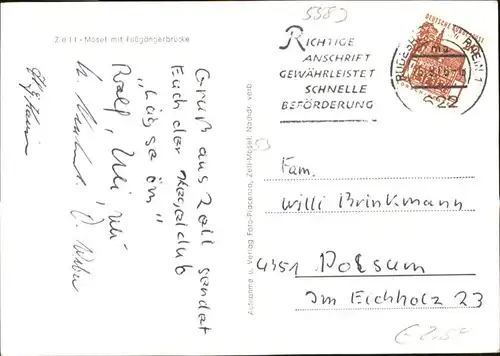 5583
Zell - Mosel mit Fußgängerbrücke
RICHTIGE
ANSCHRIFT
GEWÄHRLEISTET
SCHNELLE
BEFÖRDERUNG
DEUTSCHE BUNDESPOST
RHEIN 1
622
Gruß aus Zell sendet
Euch der Kegelclub
Ralf,
Aufnahme u. Verlag Foto-Piacenza, Zell-Mosel, Nachdr. verb.
Fam.
Willi Brinkmann
4351 Polsum
Im Eichholz 23
€ 2,50